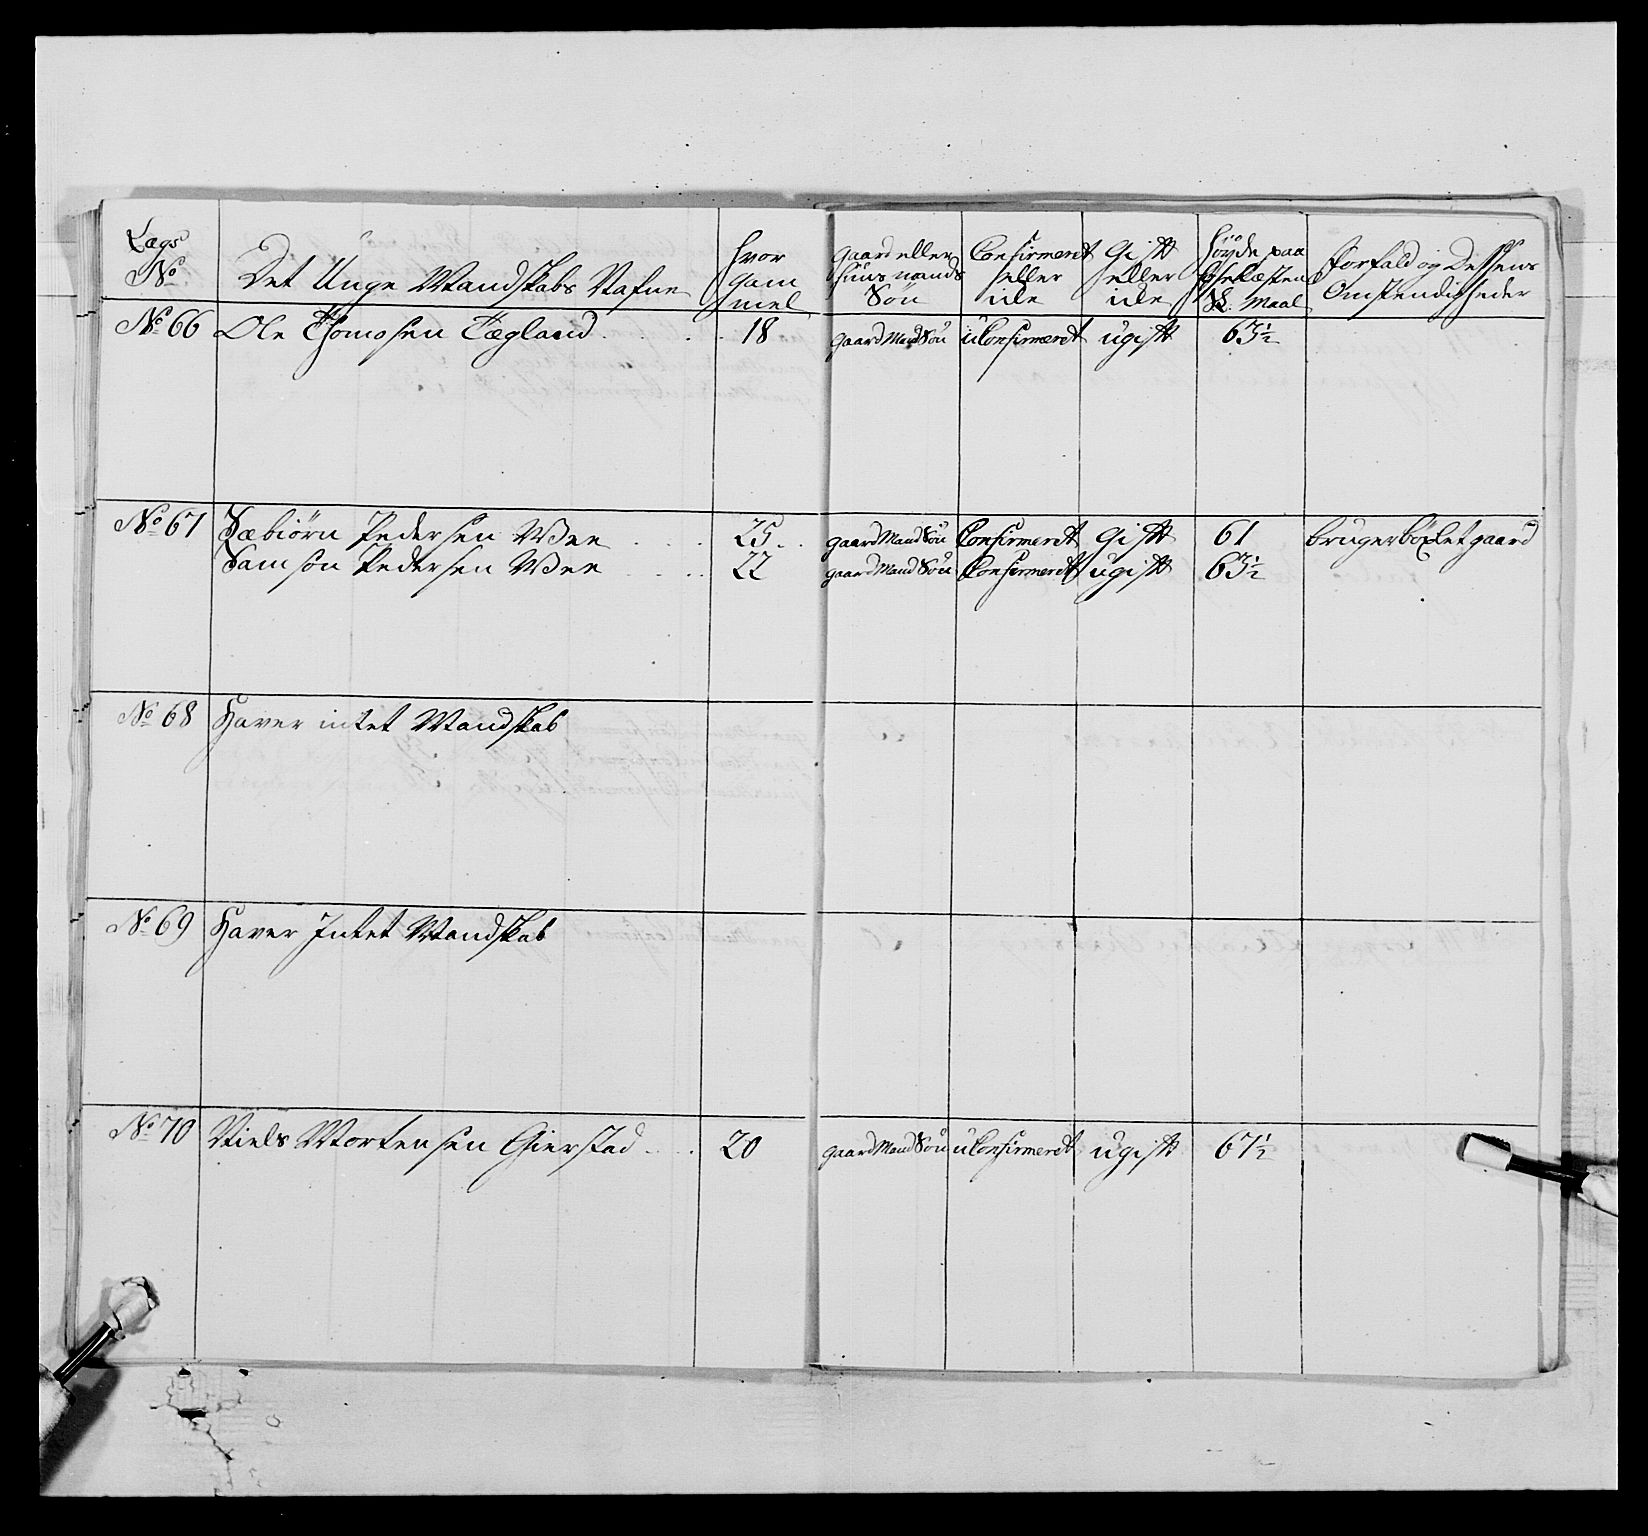 Lægs No | Det Unge Mandskabs Nafne | hvor gam mel | gaard eller huus mands Søn | Confirmeret eller ide | Gift eller ide | høyde paa Maal | Forfald og Dessens Omstendigheder
No 66 Ole Thomosen Tægland 18 gaard Mand Søn uConfirmeret ugift 63½
No 67 Sæbiørn Pedersen Wee 25 gaard Mand Søn Confirmeret Gift 61 bruger böxlet gaard
Samson Pedersen Wee 22 gaard Mand Søn Confirmeret ugift 63½
No 68 Haver intet Mandskab
No 69 Haver Intet Mandskab
No 70 Niels Mortensen Gierstad 20 gaard Mand Søn uConfirmeret ugift 67½